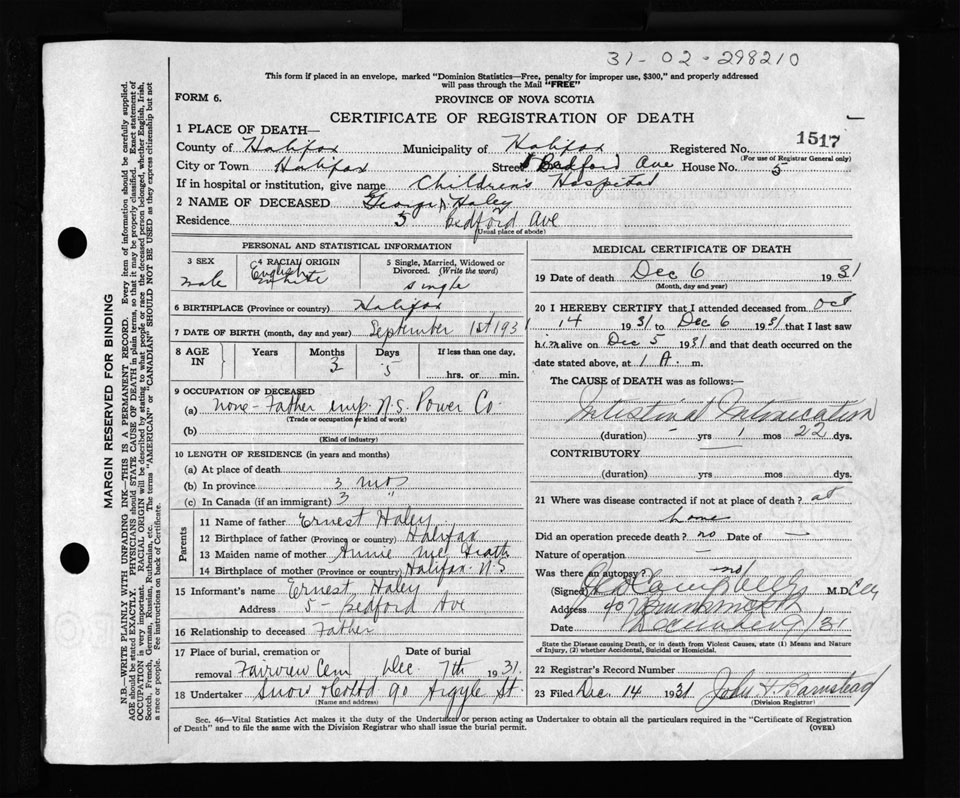 31-02-298210
This form if placed in an envelope, marked "Dominion Statistics—Free, penalty for improper use, $300," and properly addressed
will pass through the Mail "FREE"
FORM 6.
PROVINCE OF NOVA SCOTIA
CERTIFICATE OF REGISTRATION OF DEATH
1 PLACE OF DEATH—
1517
County of Halifax Municipality of Halifax Registered No.
(For use of Registrar General only)
City or Town Halifax Street Bedford Ave House No. 5
If in hospital or institution, give name Children's Hospital
2 NAME OF DECEASED George Haley
Residence 5 Bedford Ave
(Usual place of abode)
PERSONAL AND STATISTICAL INFORMATION
3 SEX
male
4 RACIAL ORIGIN
English
White
5 Single, Married, Widowed or
Divorced. (Write the word)
single
6 BIRTHPLACE (Province or country) Halifax
7 DATE OF BIRTH (month, day and year) September 1st 1931
8 AGE IN Years Months Days If less than one day,
3 5
hrs. or min.
9 OCCUPATION OF DECEASED
(a) None - Father emp. N.S. Power Co.
(Trade or occupation or kind of work)
(b)
(Kind of industry)
10 LENGTH OF RESIDENCE (in years and months)
(a) At place of death
(b) In province 3 mos
(c) In Canada (if an immigrant) 3 "
Parents
11 Name of father Ernest Haley
12 Birthplace of father (Province or country) Halifax
13 Maiden name of mother Annie Mc Grath
14 Birthplace of mother (Province or country) Halifax N.S
15 Informant's name Ernest Haley
Address 5 - Bedford Ave
16 Relationship to deceased Father
17 Place of burial, cremation or Date of burial
removal Fairview Cem Dec. 7th 1931.
18 Undertaker Snow & Co Ltd 90 Argyle St.
(Name and address)
MEDICAL CERTIFICATE OF DEATH
19 Date of death Dec 6 1931
(Month, day and year)
20 I HEREBY CERTIFY that I attended deceased from Oct
14 1931 to Dec 6 1931 that I last saw
him alive on Dec 5 1931 and that death occurred on the
date stated above, at 1 A. m.
The CAUSE of DEATH was as follows:—
Intestinal Intoxication
(duration) - yrs 1 mos 22 dys.
CONTRIBUTORY
(duration) yrs mos dys.
21 Where was disease contracted if not at place of death? at
home
Did an operation precede death? no Date of —
Nature of operation —
Was there an autopsy? no
(Signed) M.D.
Address 90
Date December 9/31
State the Disease causing Death, or in Death from Violent Causes, state (1) Means and Nature
of Injury, (2) whether Accidental, Suicidal or Homicidal.
22 Registrar's Record Number
23 Filed Dec. 14 1931 John H Barnstead
(Division Registrar)
Sec. 46—Vital Statistics Act makes it the duty of the Undertaker or person acting as Undertaker to obtain all the particulars required in the "Certificate of Registration
of Death" and to file the same with the Division Registrar who shall issue the burial permit.
(OVER)
MARGIN RESERVED FOR BINDING
N.B.—WRITE PLAINLY WITH UNFADING INK—THIS IS A PERMANENT RECORD. Every item of information should be carefully supplied.
AGE should be stated EXACTLY. PHYSICIANS should STATE CAUSE OF DEATH in plain terms, so that it may be properly classified. Exact statement of
OCCUPATION is very important. RACIAL ORIGIN will be described by stating to what people or race the deceased person belonged, whether English, Irish,
Scotch, French, German, Russian, Ruthenian, etc. The terms "AMERICAN" or "CANADIAN" SHOULD NOT BE USED as they express citizenship but not
a race or people. See instructions on back of Certificate.